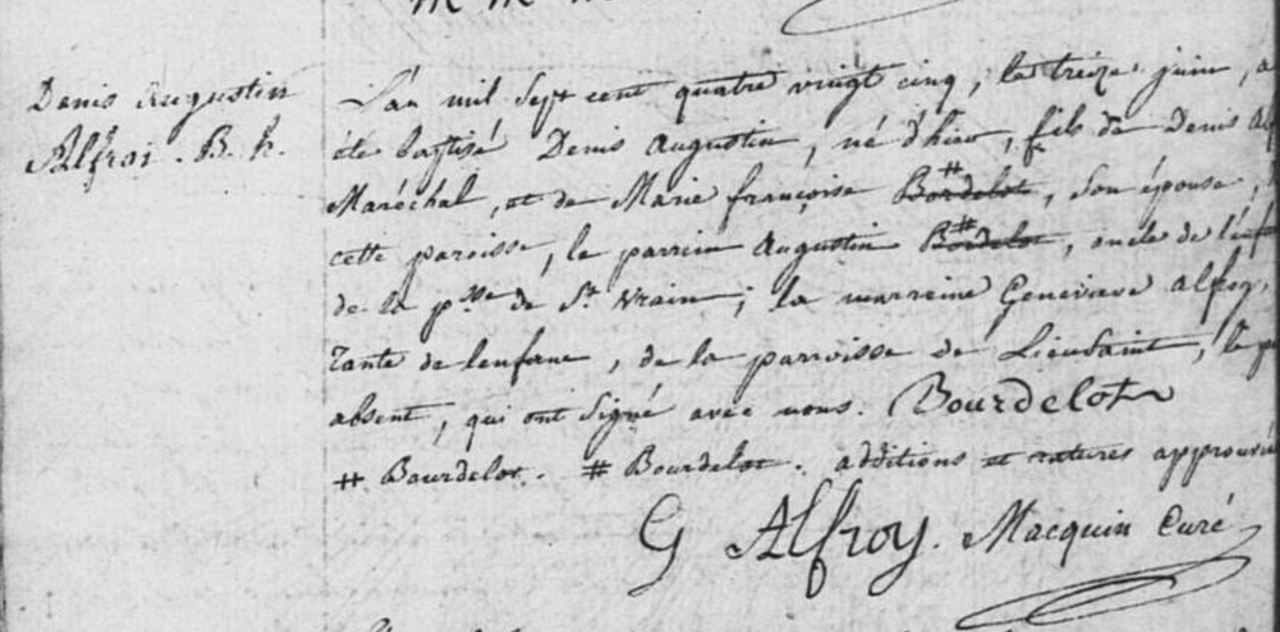 Denis Augustin
Alfroi. B. h.
L'an mil Sept cent quatre vingt cinq, le treize juin, a
été baptisé Denis Augustin, né d'hier, fils de Denis
Maréchal, et de Marie françoise # Bordelot, Son épouse,
cette paroisse, le parrein Augustin # Bordelot, oncle de l'enf
de la p.sse de St. Vrain; la marreine Genevieve alfroy,
Tante de lenfant, de la parroisse de Lieusaint, le p
absent, qui ont Signé avec nous. Bourdelot
# Bourdelot. # Bourdelot. additions et ratures approuvé
G Alfroy. Macquin Curé